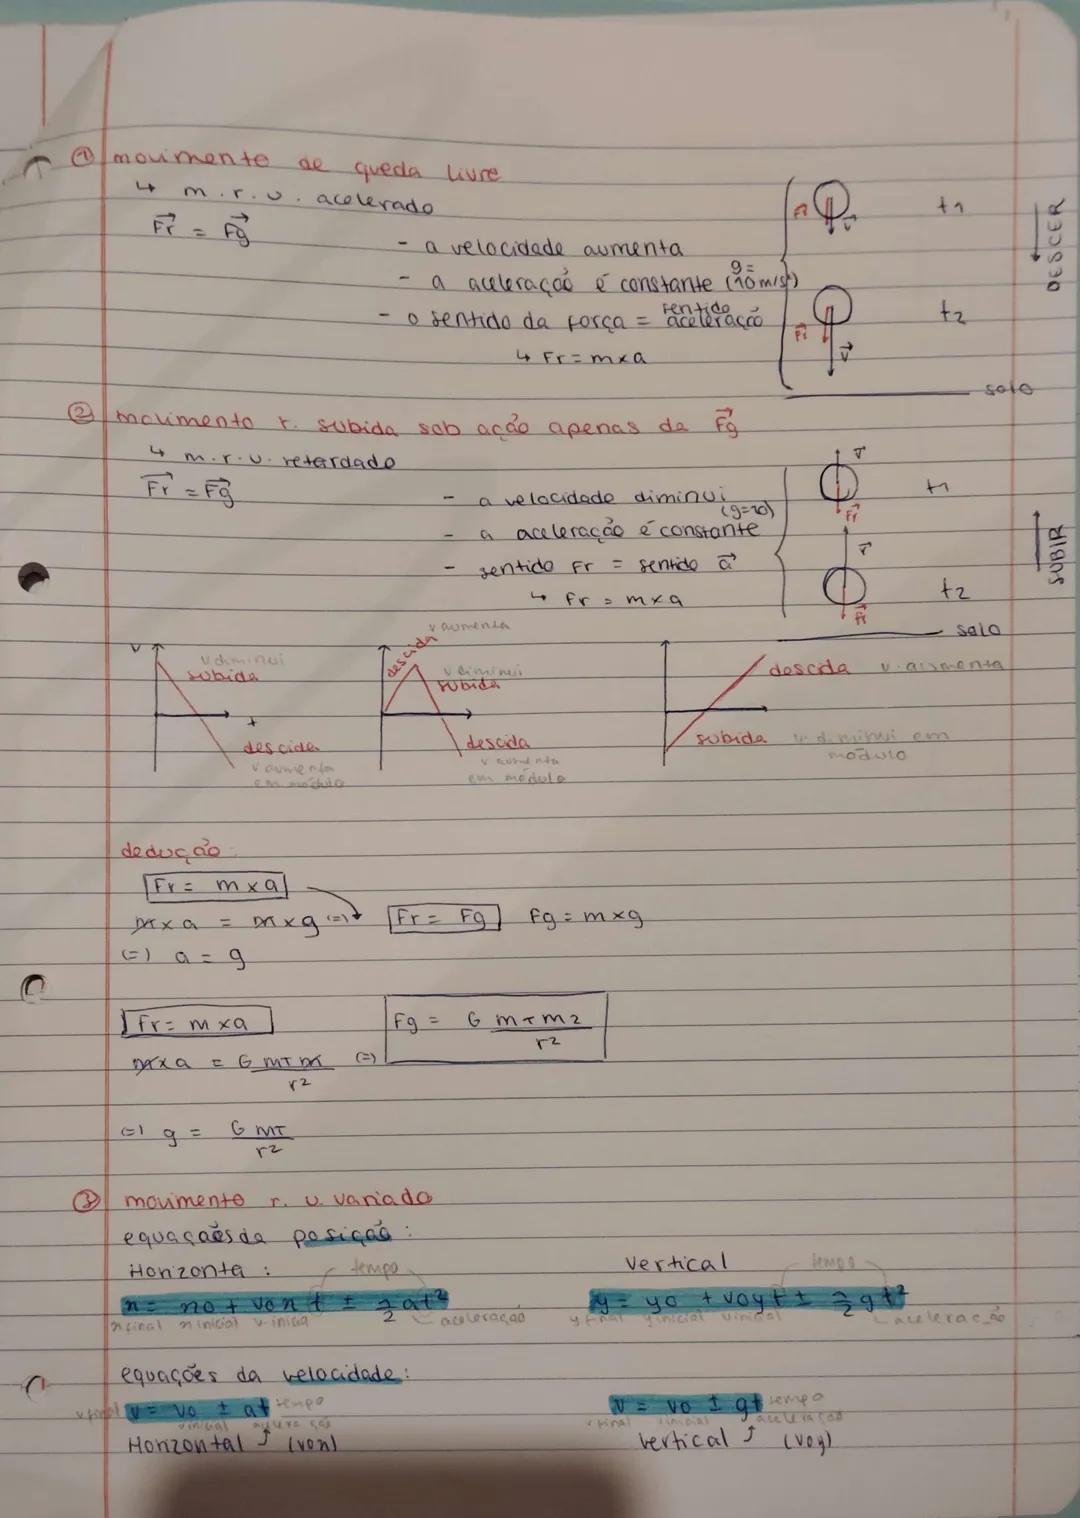 ① movimento de queda livre
↳ m.r.u. acelerado
Fr = Fg
- a velocidade aumenta
- a aceleração é constante (g = 10 m/s²)
- o sentido da força = sentido aceleração
↳ Fr = m x a
Fr v t1
Fr v t2
DESCER
solo
② movimento r. subida sob ação apenas da Fg
↳ m.r.u. retardado
Fr = Fg
- a velocidade diminui
- a aceleração é constante (g=10)
- sentido Fr = sentido a
↳ Fr = m x a
v Fr t1
v Fr t2
SUBIR
solo
v
v diminui
subida
t
descida
v aumenta
em módulo
v aumenta
descida
v diminui
subida
descida
v aumenta
em módulo
descida v. aumenta
subida v. diminui em
módulo
dedução:
Fr = m x a
m x a = m x g (=) Fr = Fg Fg = m x g
(=) a = g
Fr = m x a
Fg = G mT m2 / r2
m x a = G mT m / r2 (=)
(=) g = G mT / r2
③ movimento r. u. variado
equações da posição:
Horizonta : tempo
x = x0 + v0x t ± 1/2 at²
x final x inicial v. inicia aceleração
vertical tempo
y = y0 + v0y t ± 1/2 g t²
y final y inicial v inicial aceleração
equações da velocidade:
v final v = v0 ± at tempo
v inicial aceleração
Horizontal (v0x)
v = v0 ± gt tempo
v final v inicial aceleração
vertical (v0y)